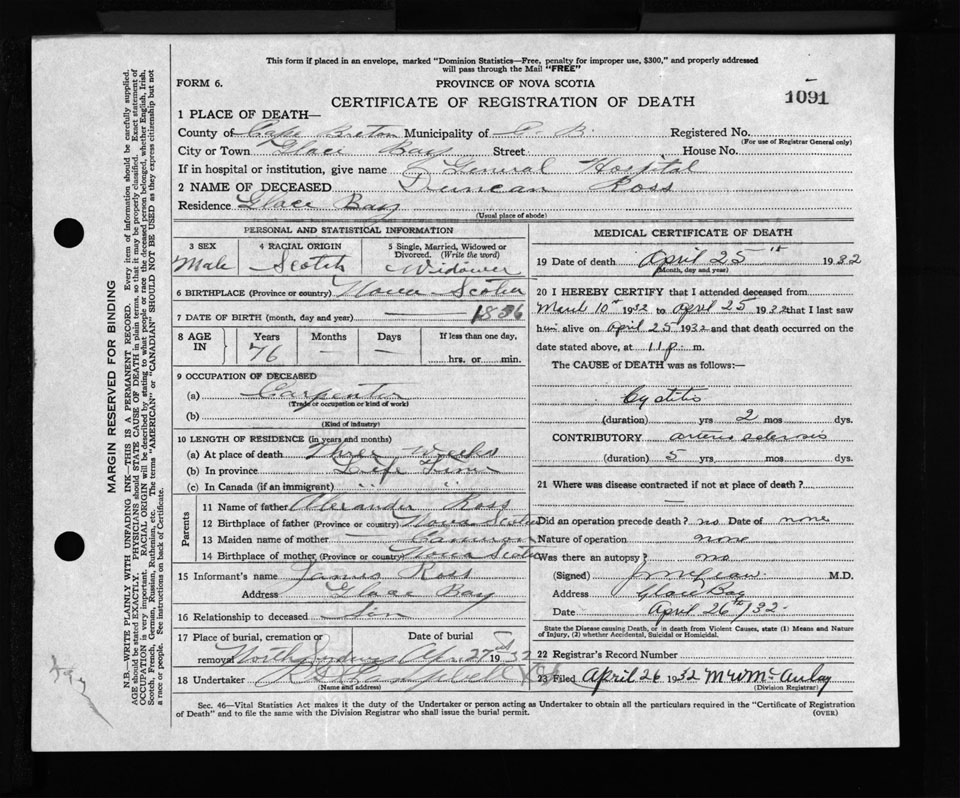 This form if placed in an envelope, marked "Dominion Statistics—Free, penalty for improper use, $300," and properly addressed
will pass through the Mail "FREE"
FORM 6.
PROVINCE OF NOVA SCOTIA
1091
CERTIFICATE OF REGISTRATION OF DEATH
1 PLACE OF DEATH—
County of Cape Breton Municipality of C. B. Registered No.
(For use of Registrar General only)
City or Town Glace Bay Street House No.
If in hospital or institution, give name General Hospital
2 NAME OF DECEASED Duncan Ross
Residence Glace Bay
(Usual place of abode)
PERSONAL AND STATISTICAL INFORMATION
3 SEX
Male
4 RACIAL ORIGIN
Scotch
5 Single, Married, Widowed or
Divorced. (Write the word)
Widower
6 BIRTHPLACE (Province or country) Nova Scotia
7 DATE OF BIRTH (month, day and year) — 1856
8 AGE
IN
Years
76
Months
—
Days
—
If less than one day,
hrs. or min.
9 OCCUPATION OF DECEASED
(a) Carpenter
(Trade or occupation or kind of work)
(b)
(Kind of industry)
10 LENGTH OF RESIDENCE (in years and months)
(a) At place of death Three Weeks
(b) In province Life Time
(c) In Canada (if an immigrant) " "
Parents
11 Name of father Alexander Ross
12 Birthplace of father (Province or country) Nova Scotia
13 Maiden name of mother — Cameron
14 Birthplace of mother (Province or country) Nova Scotia
15 Informant's name James Ross
Address Glace Bay
16 Relationship to deceased Son
17 Place of burial, cremation or
removal North Sydney
Date of burial
Apr. 27 1932
18 Undertaker Campbell
(Name and address)
MEDICAL CERTIFICATE OF DEATH
19 Date of death April 25th 1932
(Month, day and year)
20 I HEREBY CERTIFY that I attended deceased from
March 10th 1932 to April 25 1932 that I last saw
him alive on April 25 1932 and that death occurred on the
date stated above, at 11 p. m.
The CAUSE of DEATH was as follows:—
Cystitis
(duration) yrs 2 mos dys.
CONTRIBUTORY arterio sclerosis
(duration) 5 yrs mos. dys.
21 Where was disease contracted if not at place of death?
—
Did an operation precede death? no Date of none
Nature of operation none
Was there an autopsy? no
(Signed) M.D.
Address Glace Bay
Date April 26th/32.
State the Disease causing Death, or in death from Violent Causes, state (1) Means and
Nature of Injury, (2) whether Accidental, Suicidal or Homicidal.
22 Registrar's Record Number
23 Filed April 26 1932 M W McAulay
(Division Registrar)
Sec. 46—Vital Statistics Act makes it the duty of the Undertaker or person acting as Undertaker to obtain all the particulars required in the "Certificate of Registration
of Death" and to file the same with the Division Registrar who shall issue the burial permit.
(OVER)
MARGIN RESERVED FOR BINDING
N.B.—WRITE PLAINLY WITH UNFADING INK—THIS IS A PERMANENT RECORD. Every item of information should be carefully supplied.
AGE should be stated EXACTLY. PHYSICIANS should STATE CAUSE OF DEATH in plain terms, so that it may be properly classified. Exact statement of
OCCUPATION is very important. RACIAL ORIGIN will be described by stating to what people or race the deceased person belonged, whether English, Irish,
Scotch, French, German, Russian, Ruthenian, etc. The terms "AMERICAN" or "CANADIAN" SHOULD NOT BE USED as they express citizenship but not
a race or people. See instructions on back of Certificate.